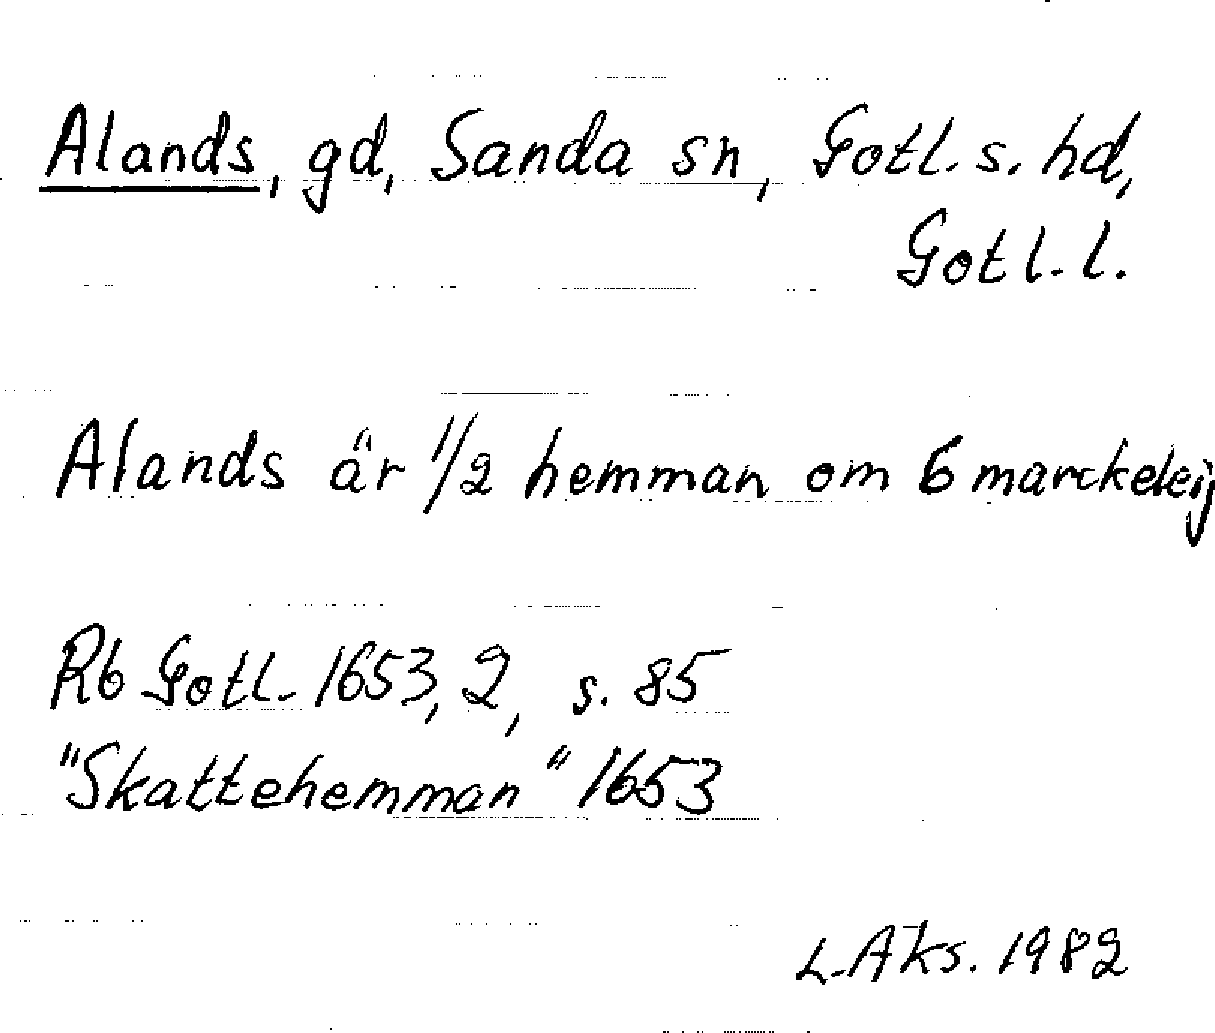 Alands, gd, Sanda sn, Gotl. s. hd,
Gotl. l.
Alands är 1/2 hemman om 6 marckeleij
Rb Gotl. 1653, 2, s. 85
"Skattehemman" 1653
L. Aks. 1982